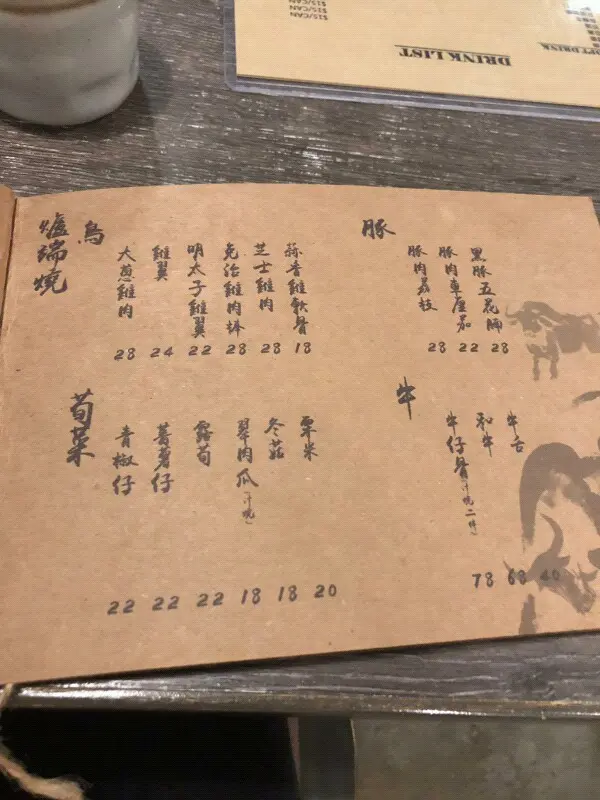 $15/CAN
$15/CAN
$15/CAN
DRINK LIST
SOFT DRINK
爐端燒
鳥
大蔥雞肉 28
雞翼 24
明太子雞翼 22
免治雞肉棒 28
芝士雞肉 28
蒜香雞軟骨 18
豚
豚肉荔枝 28
豚肉車厘茄 22
黑豚五花腩 28
荀菜
青椒仔 22
薯仔 22
露荀 22
翠肉瓜 18
冬菇 18
粟米 20
牛
牛仔骨 78
和牛 68
牛舌 40